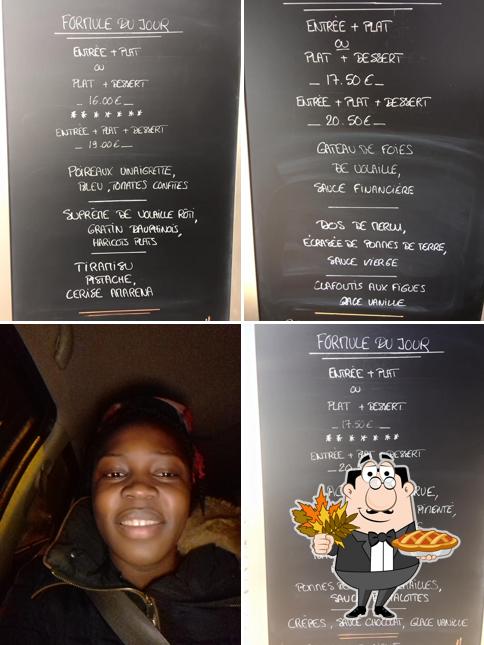 FORMULE DU JOUR
ENTRÉE + PLAT
OU
PLAT + DESSERT
_ 16.00 € _
* * * * * * *
ENTRÉE + PLAT + DESSERT
_ 19.00 € _
POIREAUX VINAIGRETTE,
BLEU, TOMATES CONFITES
SUPRÊME DE VOLAILLE RÔTI,
GRATIN DAUPHINOIS,
HARICOTS PLATS
TIRAMISU
PISTACHE,
CERISE AMARENA
ENTRÉE + PLAT
OU
PLAT + DESSERT
_ 17.50 € _
ENTRÉE + PLAT + DESSERT
_ 20.50 € _
GATEAU DE FOIES
DE VOLAILLE,
SAUCE FINANCIÈRE
DOS DE MERLU,
ÉCRASÉE DE POMMES DE TERRE,
SAUCE VIERGE
CLAFOUTIS AUX FIGUES
GLACE VANILLE
FORMULE DU JOUR
ENTRÉE + PLAT
OU
PLAT + DESSERT
_ 17.50 € _
* * * * * * *
ENTRÉE + DESSERT
PIMENTÉ,
POMMES
CRÊPES, SAUCE CHOCOLAT, GLACE VANILLE